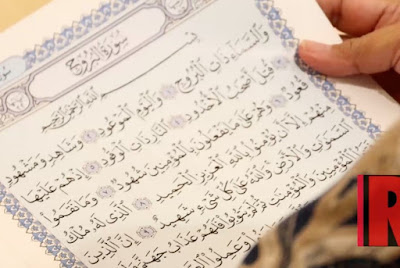 سُورَةُ الْبُرُوجِ
بِسْمِ اللَّهِ الرَّحْمَٰنِ الرَّحِيمِ
وَالسَّمَاءِ ذَاتِ الْبُرُوجِ ١ وَالْيَوْمِ الْمَوْعُودِ ٢ وَشَاهِدٍ وَمَشْهُودٍ ٣
قُتِلَ أَصْحَابُ الْأُخْدُودِ ٤ النَّارِ ذَاتِ الْوَقُودِ ٥ إِذْ هُمْ عَلَيْهَا
قُعُودٌ ٦ وَهُمْ عَلَىٰ مَا يَفْعَلُونَ بِالْمُؤْمِنِينَ شُهُودٌ ٧ وَمَا نَقَمُوا
مِنْهُمْ إِلَّا أَن يُؤْمِنُوا بِاللَّهِ الْعَزِيزِ الْحَمِيدِ ٨ الَّذِي لَهُ مُلْكُ
السَّمَاوَاتِ وَالْأَرْضِ وَاللَّهُ عَلَىٰ كُلِّ شَيْءٍ شَهِيدٌ ٩ إِنَّ الَّذِينَ
الْمُؤْمِنِينَ وَالْمُؤْمِنَاتِ ثُمَّ لَمْ يَتُوبُوا فَلَهُمْ عَذَابُ جَهَنَّمَ
وَعَمِلُوا
R